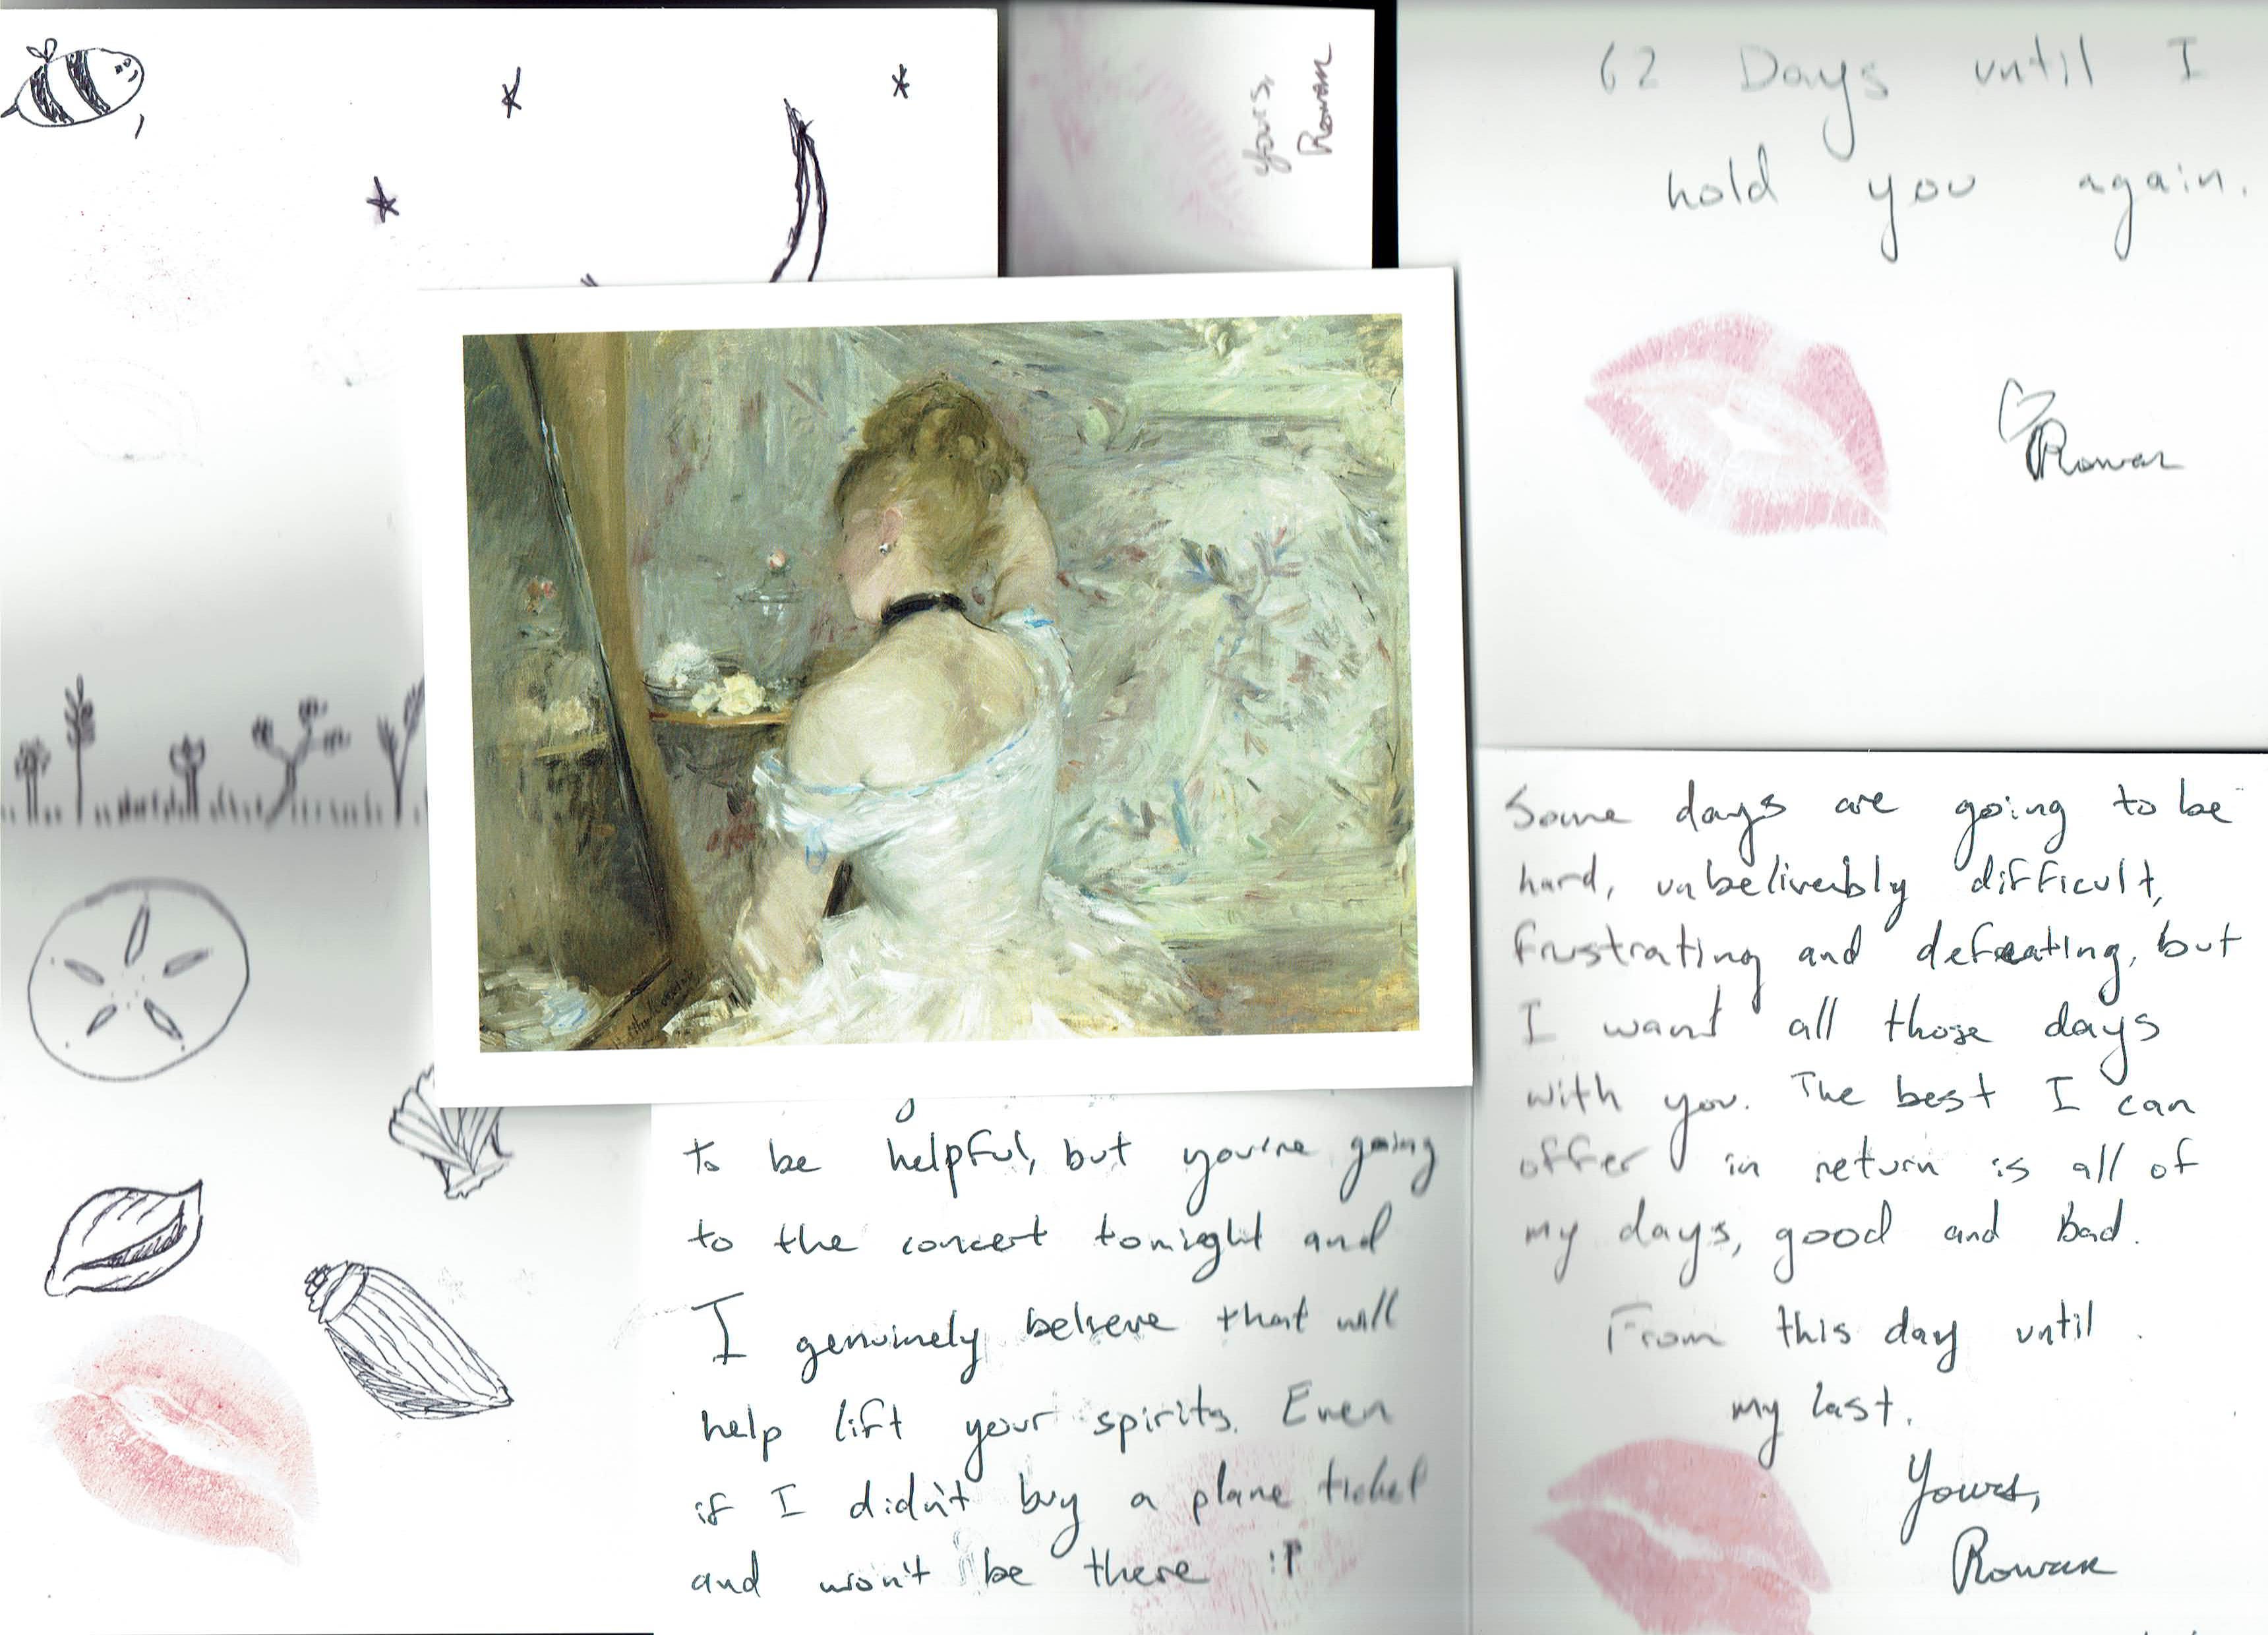 Yours,
Rowan
62 Days until I
hold you again.
Rowan
to be helpful, but you're going
to the concert tonight and
I genuinely believe that will
help lift your spirits. Even
if I didn't buy a plane ticket
and won't be there :P
Some days are going to be
hard, unbeliveably difficult,
frustrating and defeating, but
I want all those days
with you. The best I can
offer in return is all of
my days, good and bad.
From this day until
my last.
Yours,
Rowan
Berthe Morisot